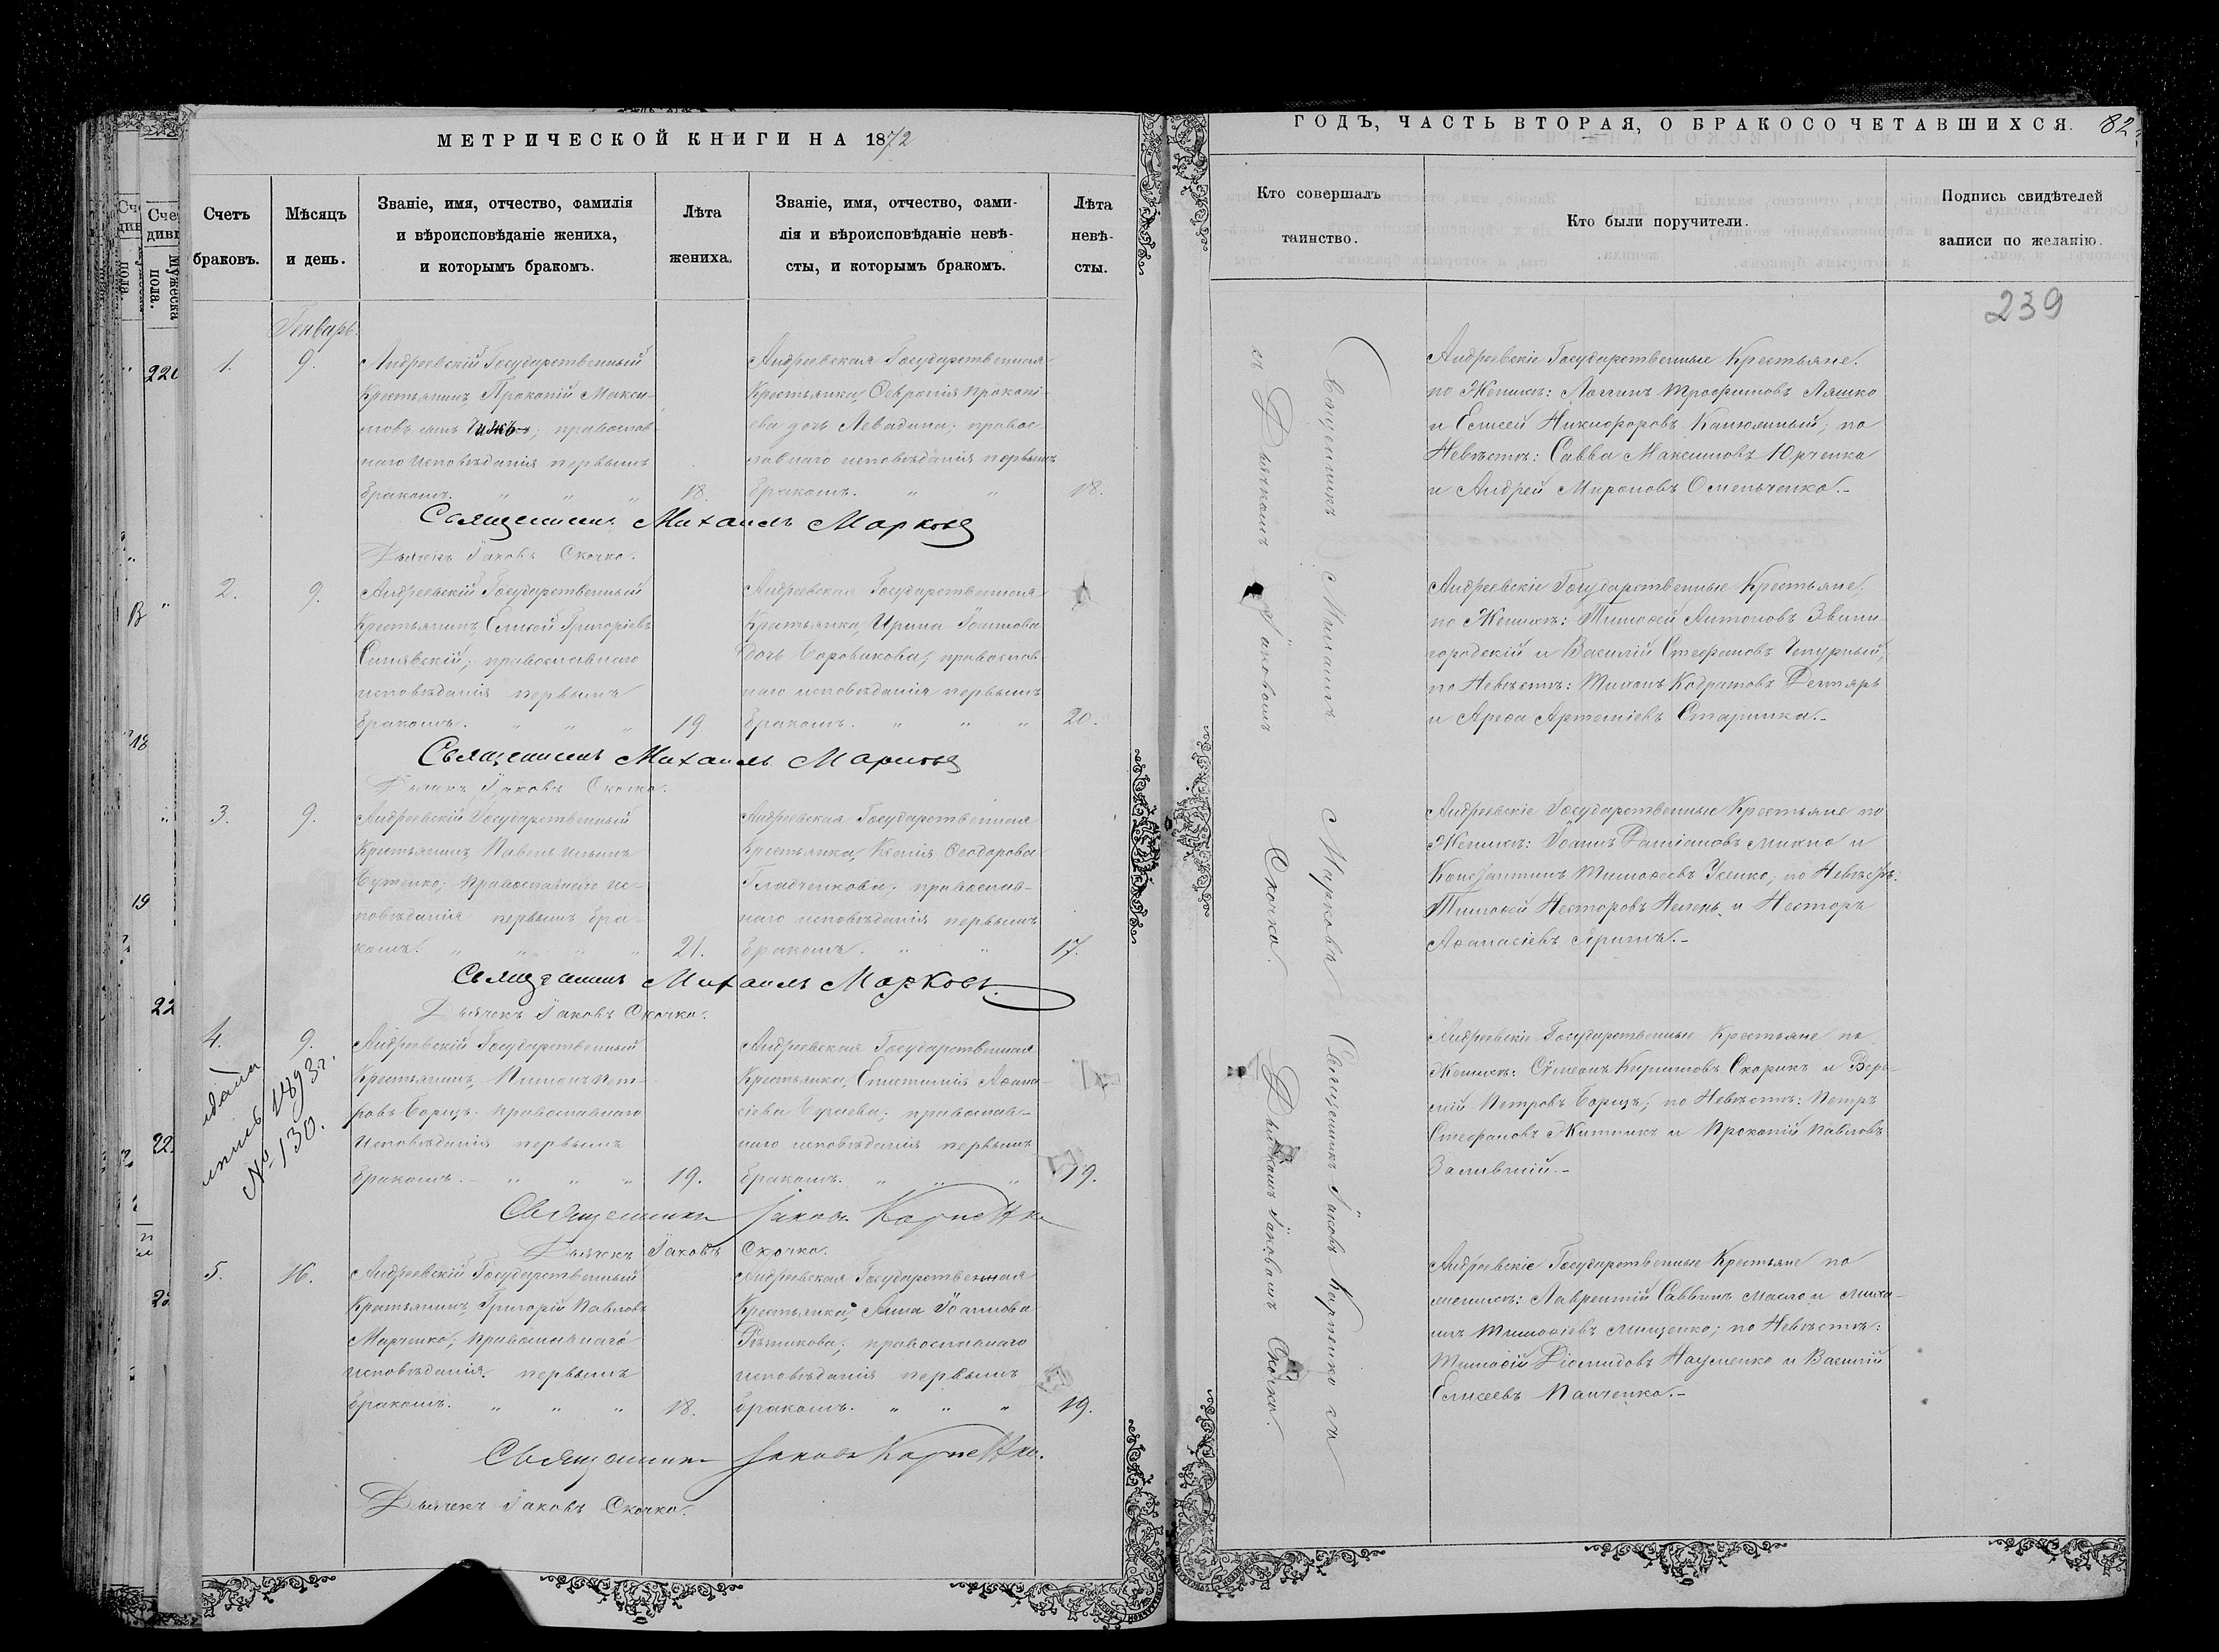 МЕТРИЧЕСКОЙ КНИГИ НА 1872
Счетъ
браковъ.
Мѣсяцъ
и день.
Званіе, имя, отчество, фамилія
и вѣроисповѣданіе жениха,
и которымъ бракомъ.
Лѣта
жениха.
Званіе, имя, отчество, фами-
лія и вѣроисповѣданіе невѣ-
сты, и которымъ бракомъ.
Лѣта
невѣ-
сты.
Генварь.
1.
9.
Андреевскій Государственный
Крестьянинъ Прокопій Макси-
мовъ сынъ православ-
наго исповѣданія первымъ
бракомъ. " " "
18.
Андреевская Государственная
Крестьянка, Февронія Прокопі-
ева дочь Левадина; правос-
лавнаго исповѣданія первымъ
бракомъ. " "
18.
Священникъ Михаилъ Марковъ
Дьячекъ Іаковъ Скочко.
2.
9.
Андреевскій Государственный
Крестьянинъ, Елисей Григоріевъ
Синявскій; православнаго
исповѣданія первымъ
бракомъ. " " "
19
Андреевская Государственная
Крестьянка, Ирина Іоаннова
дочь Боровикова; православ-
наго исповѣданія первымъ
бракомъ. " " "
20.
Священникъ Михаилъ Марковъ
Дьячекъ Іаковъ Скочко.
3.
9.
Андреевскій Государственный
Крестьянинъ, Павелъ Ильинъ
православнаго ис-
повѣданія первымъ бра-
комъ. " " " "
21.
Андреевская Государственная
Крестьянка, Ксенія Феодорова
Гладченкова; православ-
наго исповѣданія первымъ
бракомъ. " "
17.
Священникъ Михаилъ Марковъ.
Дьячекъ Іаковъ Скочко.
4.
9.
1893г.
№ 130.
Андреевскій Государственный
Крестьянинъ, Пименъ Пет-
ровъ Борщъ. православнаго
исповѣданія первымъ
бракомъ. - " " "
19.
Андреевская Государственная
Крестьянка, Епистимія Афана-
сіева православ-
наго исповѣданія первымъ
бракомъ. " " "
19.
Священникъ Іаковъ Карпенко
Дьячекъ Іаковъ Скочко.
5.
16.
Андреевскій Государственный
Крестьянинъ, Григорій Павловъ
Марченко; православнаго
исповѣданія первымъ
бракомъ. " " "
18.
Андреевская Государственная
Крестьянка, Анна Іоаннова
Рѣзникова; православнаго
исповѣданія первымъ
бракомъ. " " "
19.
Священникъ Іаковъ Карпенко.
Дьячекъ Іаковъ Скочко.
ГОДЪ, ЧАСТЬ ВТОРАЯ, О БРАКОСОЧЕТАВШИХСЯ. 82
Кто совершалъ
таинство.
Кто были поручители.
Подпись свидѣтелей
записи по желанію.
239
Священникъ Михаилъ Марковъ
съ Дьячкомъ Іаковомъ Скочко.
Священникъ Іаковъ Карпенко съ
Дьячкомъ Іаковомъ Скочко.
Андреевскіе Государственные Крестьяне.
по Женихѣ: Логгинъ Трофимовъ Ляшко
и Елисей Никифоровъ по
Невѣстѣ: Савва Максимовъ Юрченко
и Андрей Мироновъ Омельченко.-
Андреевскіе Государственные Крестьяне.
по Женихѣ: Тимофей Антоновъ Звени-
городскій и Василій Стефановъ Чепурный,
по Невѣстѣ: Тихонъ Кодратовъ Дегтярь
и Арефа Артеміевъ Старинка.-
Андреевскіе Государственные Крестьяне по
Женихѣ: Іоаннъ Даміановъ Михно и
Константинъ Тимофеевъ Усенко, по Невѣстѣ:
Тимофей Несторовъ и Несторъ
Афанасіевъ
Андреевскіе Государственные Крестьяне по
Женихѣ: Сѵмеонъ Кириловъ Скорикъ и
Петровъ Борщъ; по Невѣстѣ: Петръ
Стефановъ Житникъ и Прокопій Павловъ
Андреевскіе Государственные Крестьяне по
женихѣ: Лаврентій Саввинъ Масло и Миха-
илъ Тимофіевъ Мищенко; по Невѣстѣ:
Тимофій Діомидовъ Науменко и Василій
Елисеевъ Панченко.-